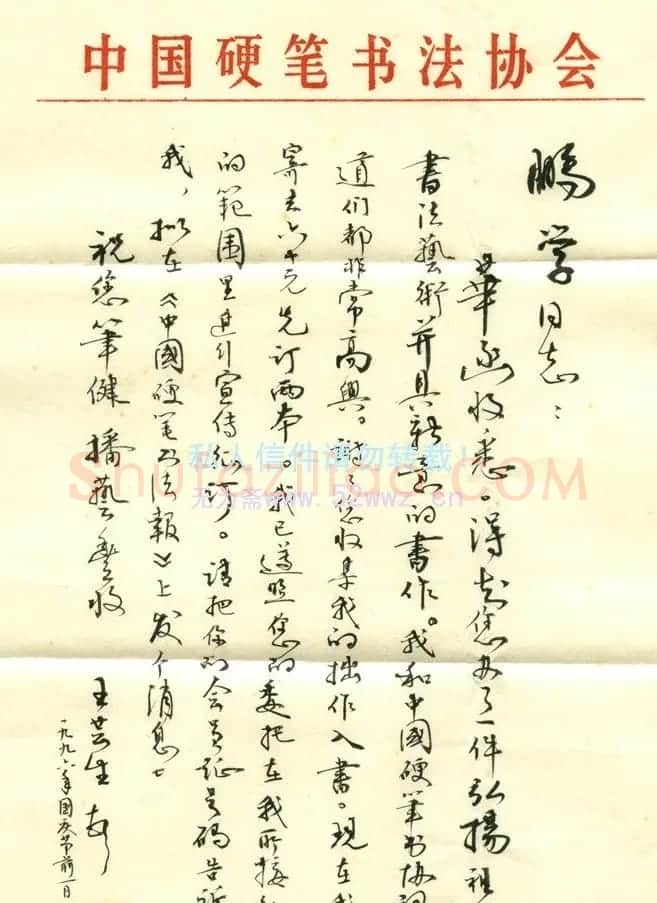 中国硬笔书法协会
鹏学同志：
華函收悉。得知您办了一件弘揚祖
書法藝術并具新意的書作。我和中國硬筆书协
道们都非常高興。謝谢您收集我的拙作入書。現在我
寄去六十元先订两本。我已遵照您的委托在我所接
的範围里进行宣传征订。请把你的会员证号码告诉
我，拟在《中國硬笔书法報》上发个消息。
祝您筆健播藝豐收
王芸生
一九九六年國庆节前一日
私人信件请勿转载！
无为斋www.52wwz.cn
Shufaziliao.COM